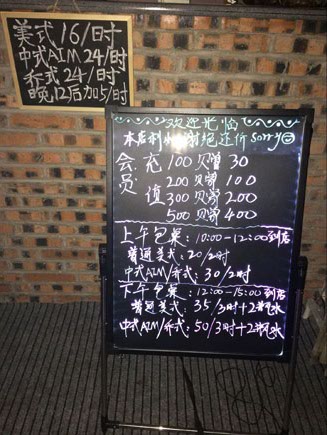 美式16/时
中式AIM 24/时
乔式24/时
晚12后加5/时
欢迎光临
本店利 谢绝还价 Sorry
会员充值
100贝赠30
200贝赠100
300贝赠200
500贝赠400
上午包桌：10:00-12:00到店
普通美式：20/2时
中式AIM/乔式：30/2时
下午包桌：12:00-15:00到店
普通美式：35/3时+2瓶水
中式AIM/乔式：50/3时+2瓶水